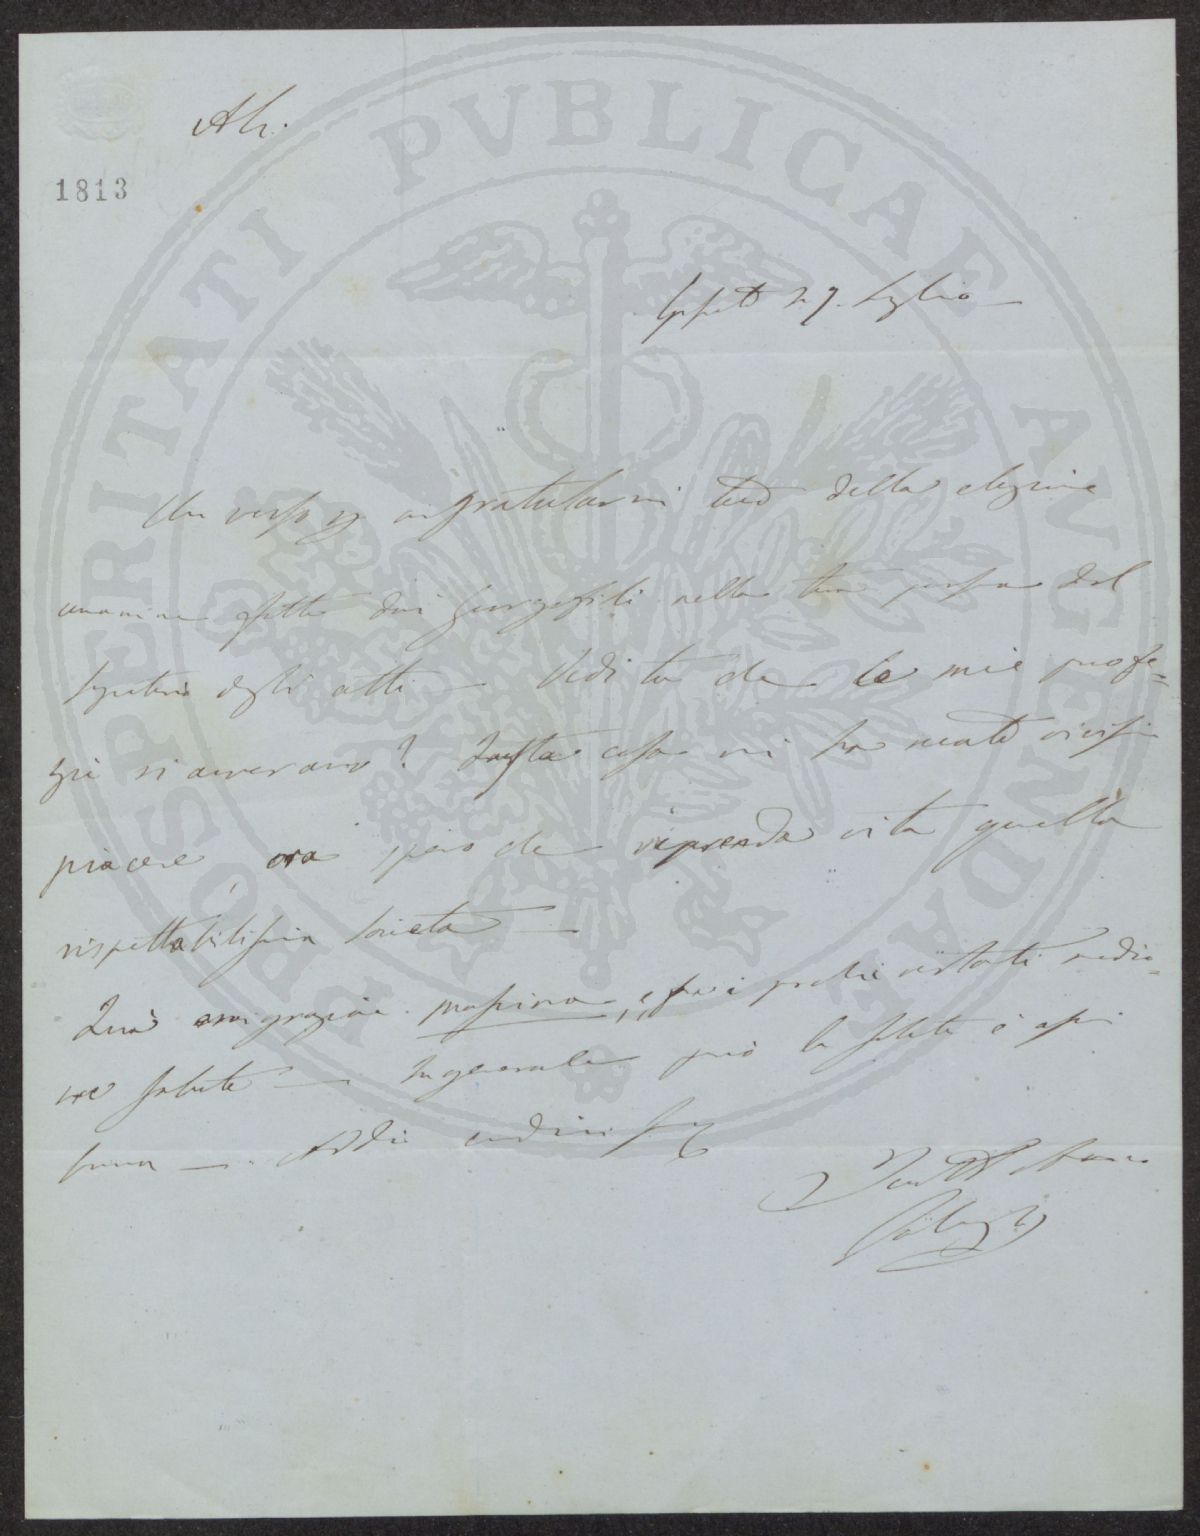 PROSPERITATI PVBLICAE AVGENDAE
A. C.
1813
27. Luglio
Un verso p congratularmi teco della elezione
unanime fatta dai Georgofili nella tua persona del
Segretario degli atti — Vedi tu che le mie profe=
zie si avverano? Questa cosa mi ha recato vivissimo
piacere, ora spero che riprenda vita quella
rispettabilissima Società —
Quà emigrazione massima, e fra i pochi restati
salute — In generale però la salute è
buona — Addio credimi